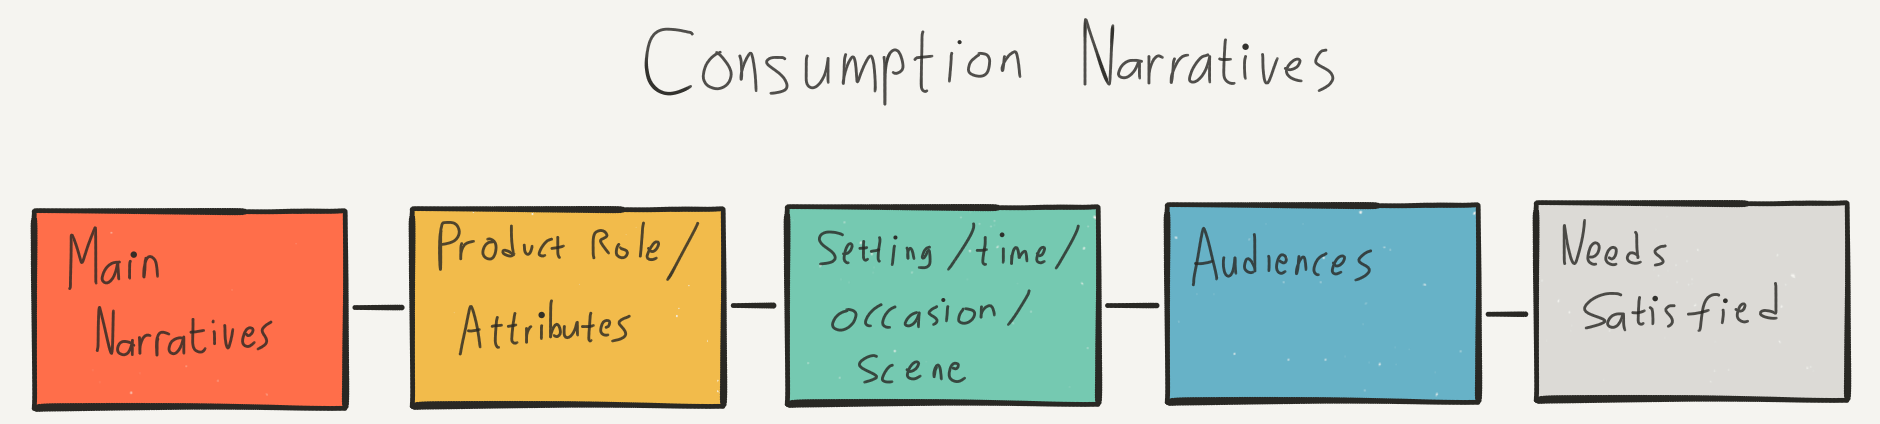 Consumption Narratives
Main
Narratives
Product Role/
Attributes
Setting/time/
occasion/
scene
Audiences
Needs
Satisfied